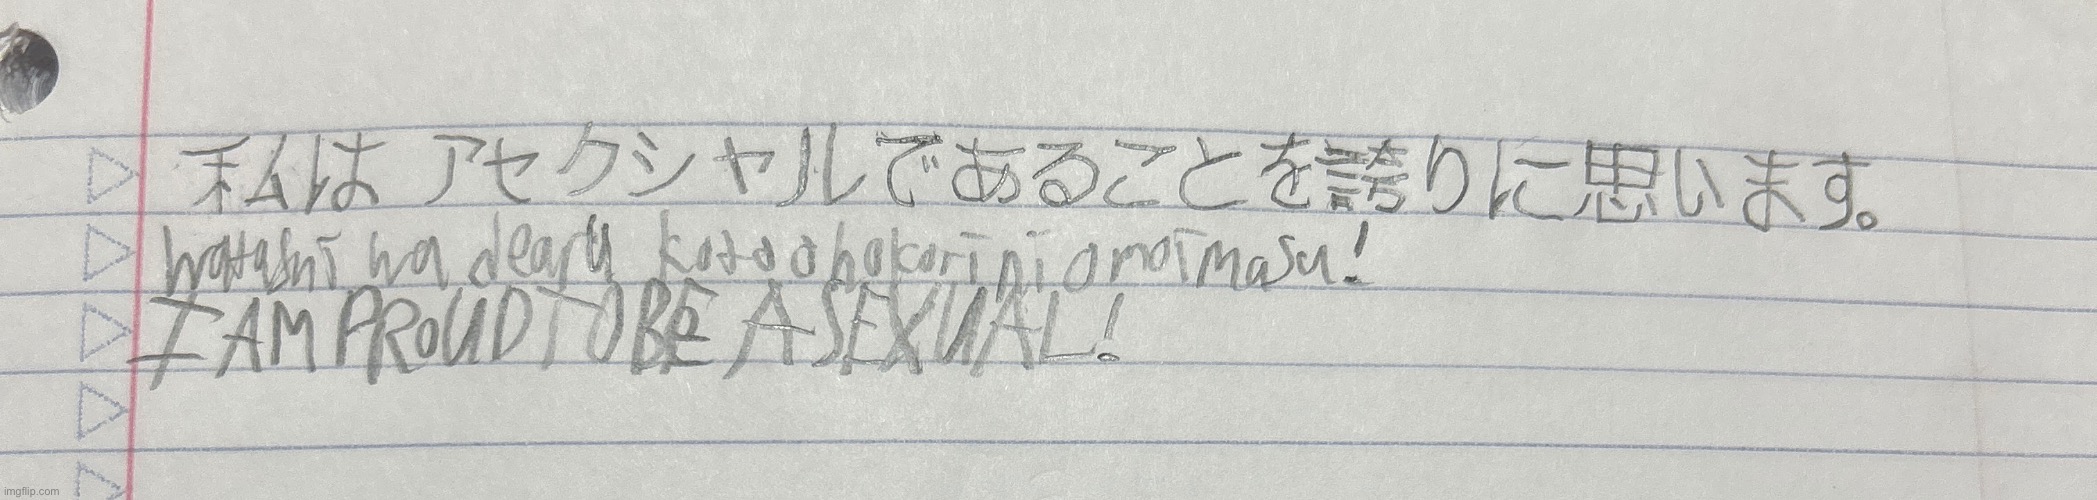 私はアセクシャルであることを誇りに思います。
watashi wa dearu koto o hokori ni omoimasu!
I AM PROUD TO BE ASEXUAL!
imgflip.com